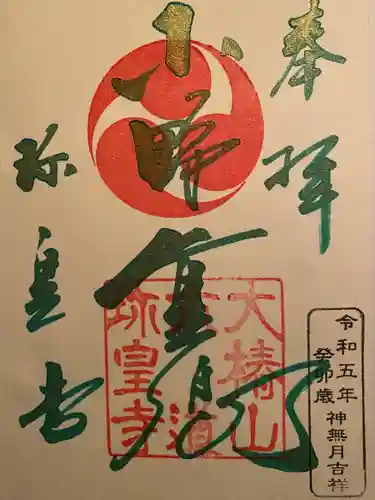 奉拝
小野
珎皇寺
大椿山
六道
珎皇寺
令和五年
癸卯歳
神無月吉祥